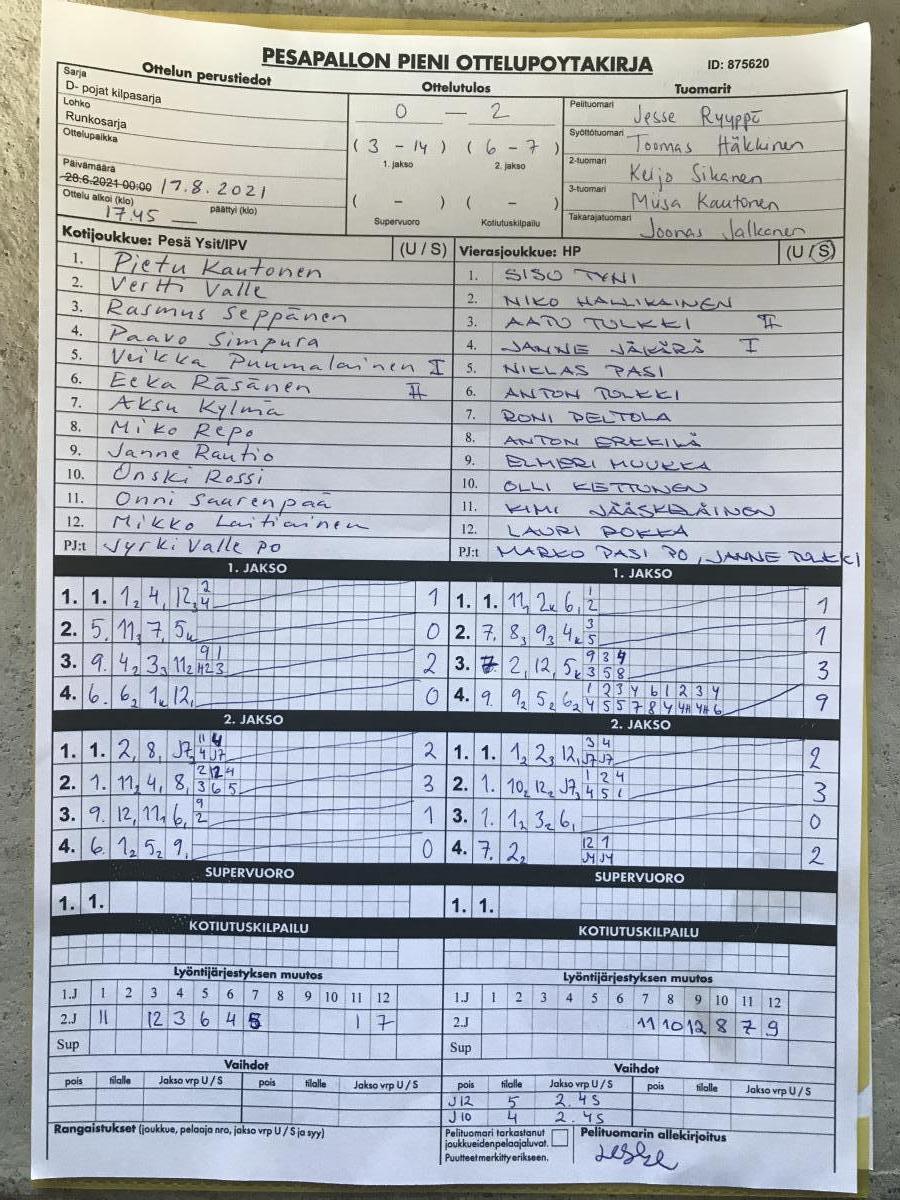 PESAPALLON PIENI OTTELUPOYTAKIRJA
ID: 875620
Ottelun perustiedot
Sarja
D- pojat kilpasarja
Lohko
Runkosarja
Ottelupaikka
Päivämäärä
28.6.2021 00:00 17.8.2021
Ottelu alkoi (klo) päättyi (klo)
17.45
Ottelutulos
0 — 2
( 3 - 14 ) ( 6 - 7 )
1. jakso 2. jakso
( - ) ( - )
Supervuoro Kotiutuskilpailu
Tuomarit
Pelituomari Jesse Ryyppö
Syöttötuomari Toomas Häkkinen
2-tuomari Keijo Sikanen
3-tuomari Miisa Kautonen
Takarajatuomari Joonas Jalkanen
Kotijoukkue: Pesä Ysit/IPV (U / S)
1. Pietu Kautonen
2. Vertti Valle
3. Rasmus Seppänen
4. Paavo Simpura
5. Veikka Puumalainen I
6. Eeka Räsänen II
7. Aksu Kylmä
8. Miko Repo
9. Janne Rautio
10. Onski Rossi
11. Onni Saarenpää
12. Mikko Laitiainen
PJ:t Jyrki Valle PO
Vierasjoukkue: HP (U / S)
1. SISU TYNI
2. NIKO HALLIKAINEN
3. AATU TULKKI II
4. JANNE JÄKÄRÄ I
5. NIKLAS PASI
6. ANTON TULKKI
7. RONI PELTOLA
8. ANTON ERKKILÄ
9. ELMERI MUUKKA
10. OLLI KIETTUNEN
11. KIMI JÄÄSKELÄINEN
12. LAURI ROKKA
PJ:t MARKO PASI PO, JANNE TULKKI
1. JAKSO
1. 1. 1 2 4 1 12 3 2 4 1
2. 5. 11 3 7 1 5 k 0
3. 9. 4 2 3 3 11 2 2
4. 6. 6 2 1 k 12 1 0
2. JAKSO
1. 1. 2 1 8 1 J7 2
2. 1. 11 2 4 1 8 1 2 12 4 3 6 5 3
3. 9. 12 1 11 1 6 1 9 2 1
4. 6. 1 2 5 2 9 1 0
1. JAKSO
1. 1. 11 2 k 6 1 1 2 1
2. 7. 8 3 9 3 4 k 3 5 1
3. 2 1 12 1 5 k 9 3 4 3 5 8 3
4. 9. 9 2 5 2 6 2 1 2 3 4 6 1 2 3 4 9
2. JAKSO
1. 1. 1 2 2 3 12 1 3 4 J7 J7 2
2. 1. 10 2 12 2 J7 3 1 2 4 4 5 1 3
3. 1. 1 2 3 2 6 1 0
4. 7. 2 2 12 1 J4 J4 2
SUPERVUORO
1. 1.
SUPERVUORO
1. 1.
KOTIUTUSKILPAILU
KOTIUTUSKILPAILU
Lyöntijärjestyksen muutos
1.J 1 2 3 4 5 6 7 8 9 10 11 12
2.J 11 12 3 6 4 5 1 7
Sup
Lyöntijärjestyksen muutos
1.J 1 2 3 4 5 6 7 8 9 10 11 12
2.J 11 10 12 8 7 9
Sup
Vaihdot
pois tilalle Jakso vrp U / S pois tilalle Jakso vrp U / S
Vaihdot
pois tilalle Jakso vrp U / S pois tilalle Jakso vrp U / S
J12 5 2.4S
J10 4 2.4S
Rangaistukset (joukkue, pelaaja nro, jakso vrp U / S ja syy)
Pelituomari tarkastanut
joukkueidenpelaajaluvat.
Puutteet merkitty erikseen.
Pelituomarin allekirjoitus